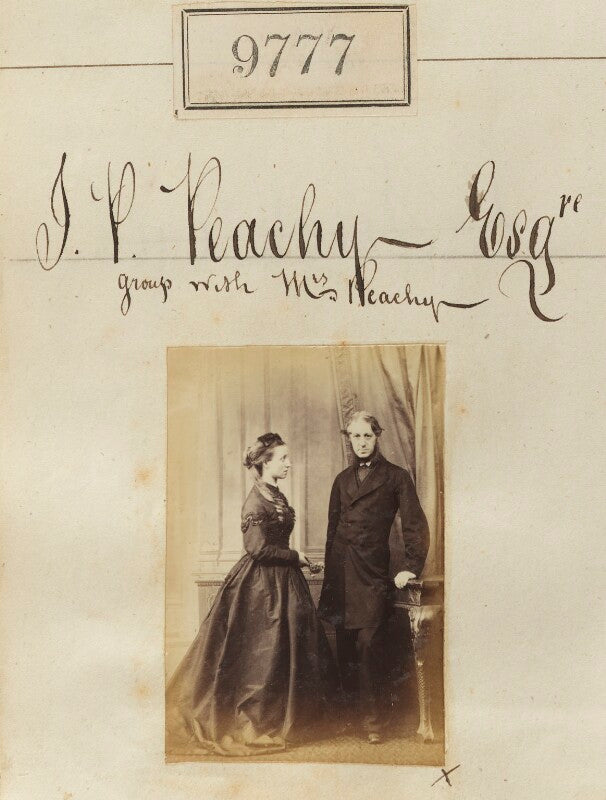 9777
J. P. Peachy Esqre
group with Mrs Peachy
x